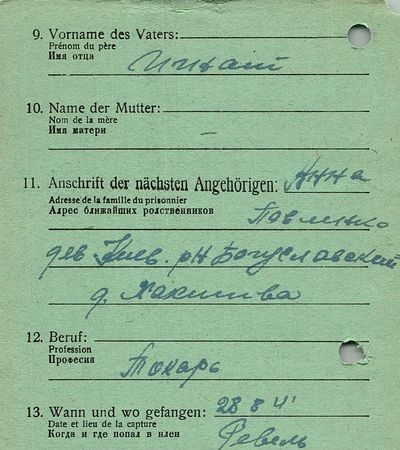 9. Vorname des Vaters:
Prénom du père
Имя отца
10. Name der Mutter:
Nom de la mère
Имя матери
–
11. Anschrift der nächsten Angehörigen: Анна
Adresse de la famille du prisonnier
Адрес ближайших родственников Павленко
рн Богуславский
д.
12. Beruf:
Profession
Професия Токарь
13. Wann und wo gefangen: 28 8 41
Date et lieu de la capture
Когда и где попал в плен Ревель